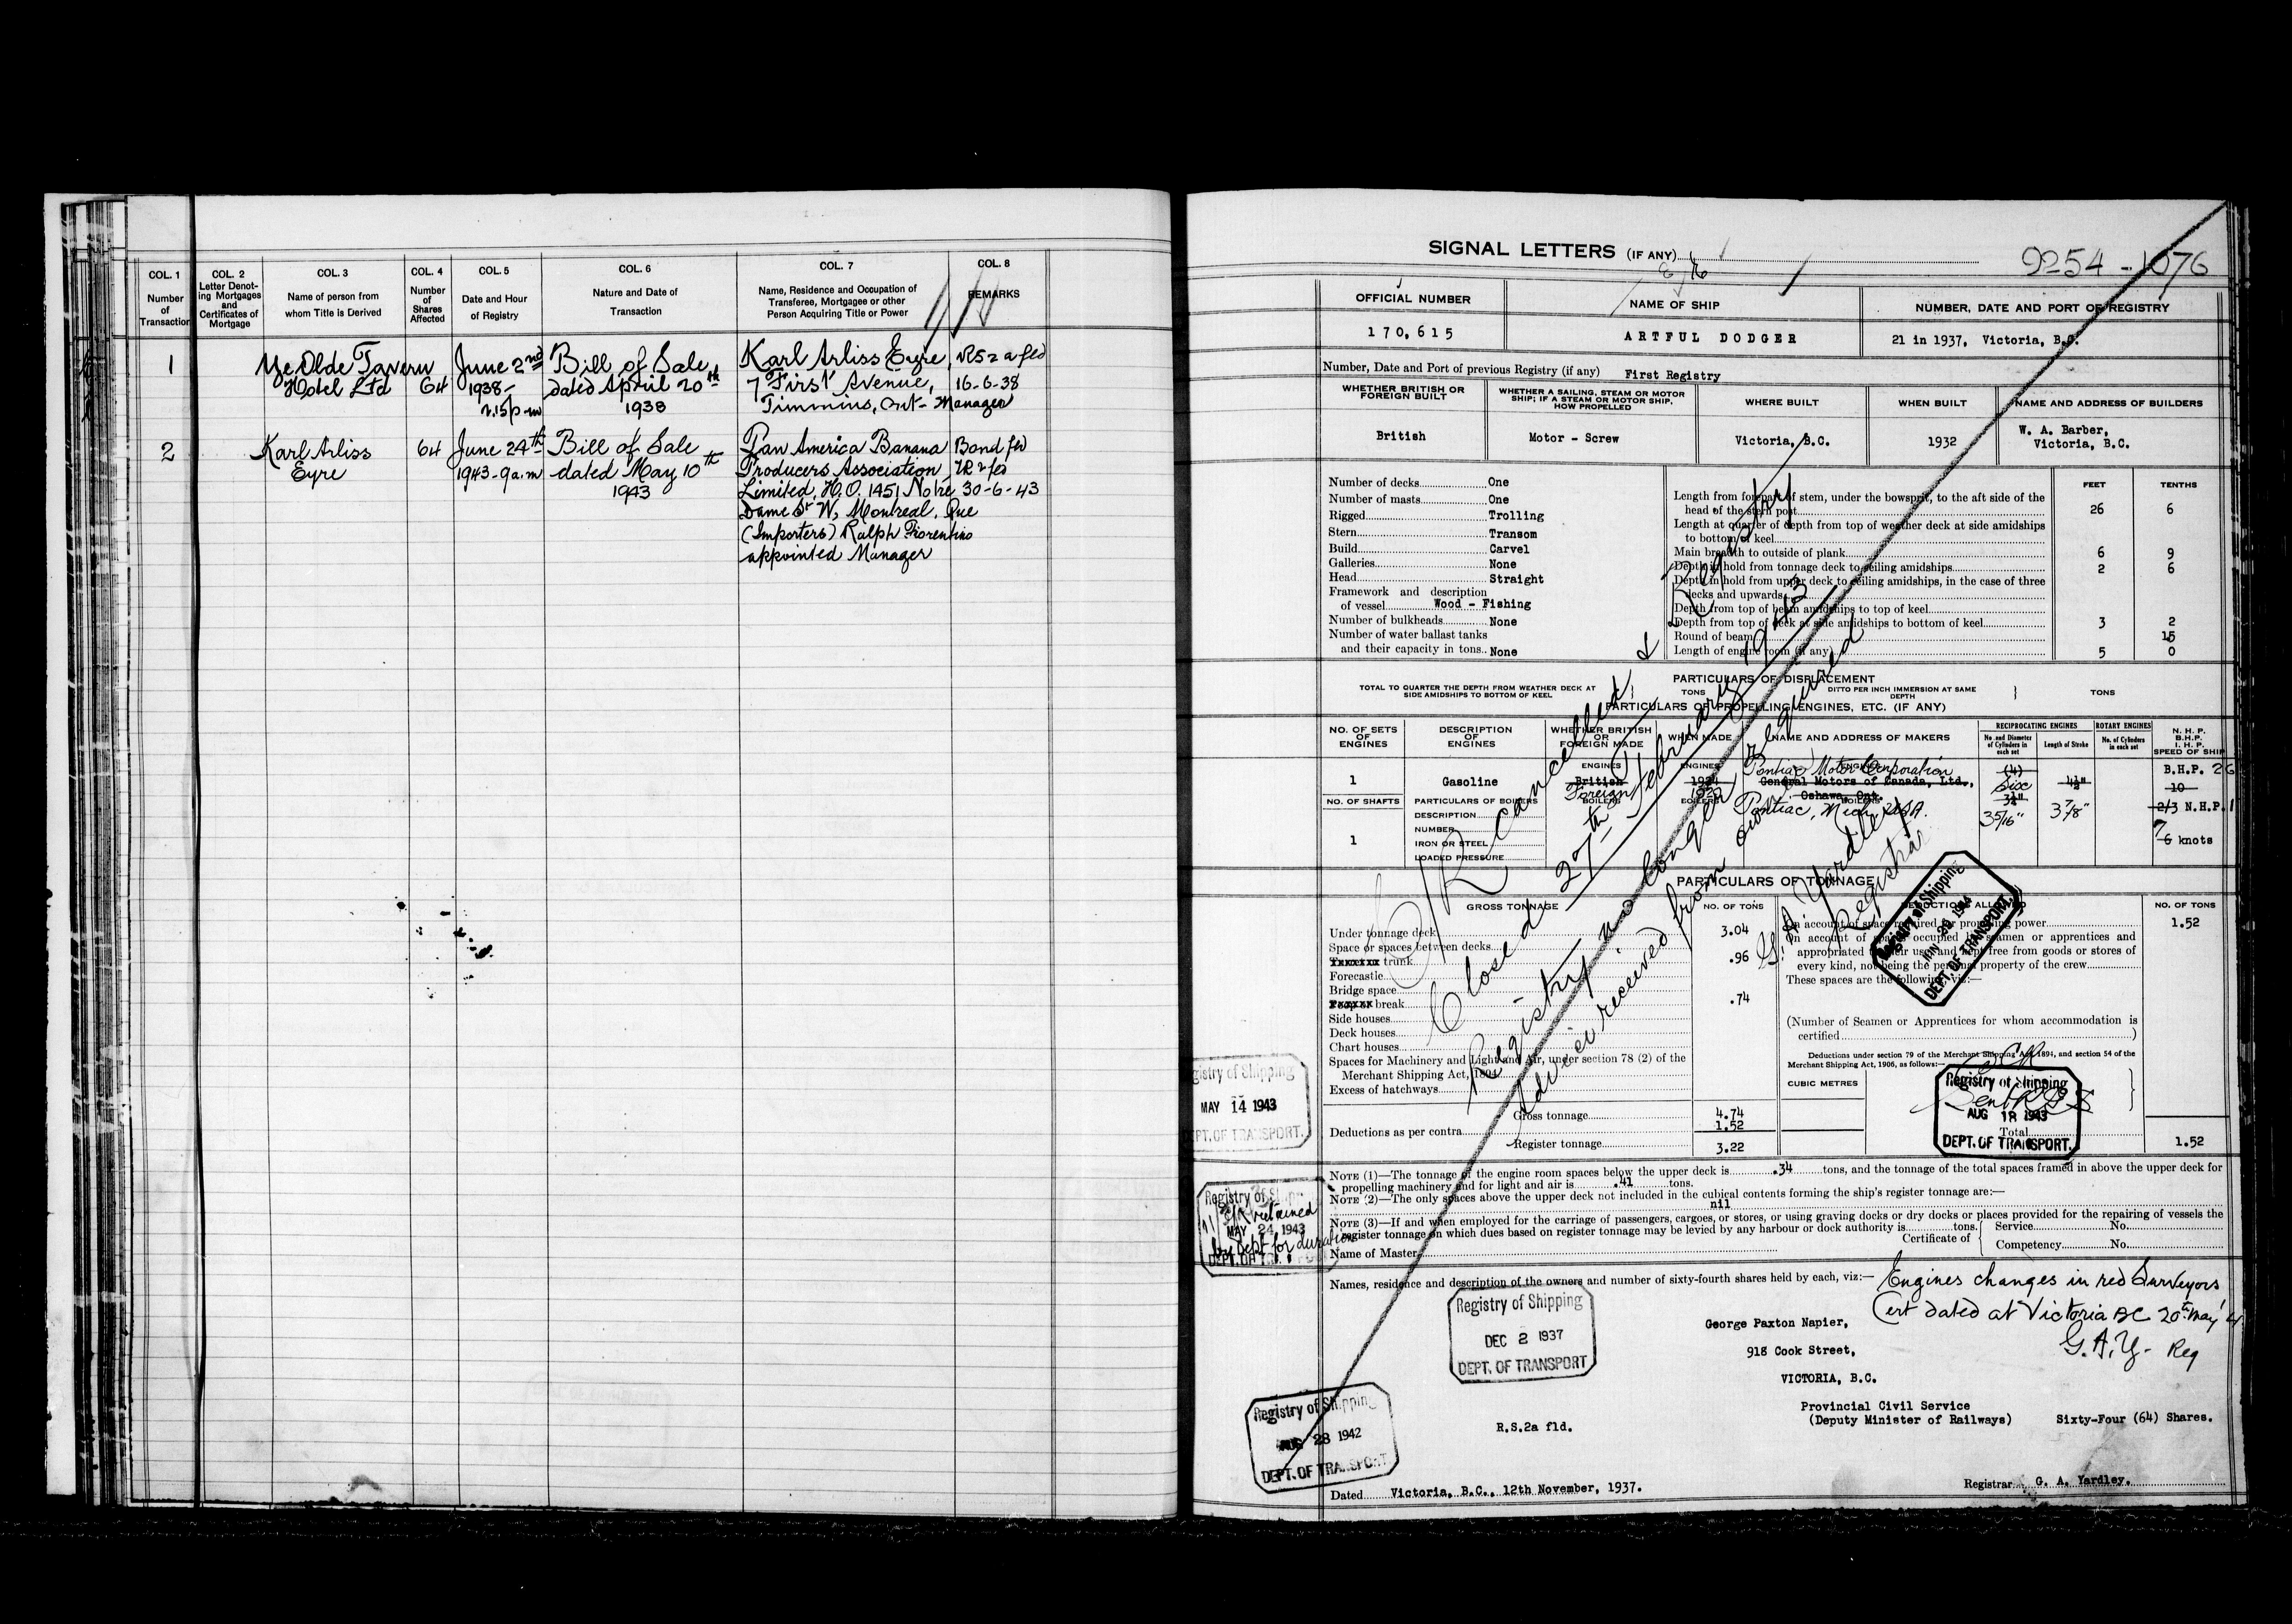 COL. 1
Number
of
Transaction
COL. 2
Letter Denot-
ing Mortgages
and
Certificates of
Mortgage
COL. 3
Name of person from
whom Title is Derived
COL. 4
Number
of
Shares
Affected
COL. 5
Date and Hour
of Registry
COL. 6
Nature and Date of
Transaction
COL. 7
Name, Residence and Occupation of
Transferee, Mortgagee or other
Person Acquiring Title or Power
COL. 8
REMARKS
1
Ye Olde Tavern
Hotel Ltd
64
June 2nd
1938-
2.15 p-m
Bill of Sale
dated April 20th
1938
Karl Arliss Eyre,
7 First Avenue,
Timmins, Ont - Manager
RS 2 a fld
16-6-38
2
Karl Arliss
Eyre
64
June 24th
1943-9a.m
Bill of Sale
dated May 10th
1943
Pan America Banana
Producers Association
Limited, H.O. 1451 Notre
Dame St W, Montreal, Que
(Importers) Ralph Fiorentino
appointed Manager
Bond fld
30-6-43
SIGNAL LETTERS (IF ANY)
9254-1076
OFFICIAL NUMBER
170,615
NAME OF SHIP
ARTFUL DODGER
NUMBER, DATE AND PORT OF REGISTRY
21 in 1937, Victoria, B.C.
Number, Date and Port of previous Registry (if any) First Registry
WHETHER BRITISH OR
FOREIGN BUILT
British
WHETHER A SAILING, STEAM OR MOTOR
SHIP; IF A STEAM OR MOTOR SHIP,
HOW PROPELLED
Motor - Screw
WHERE BUILT
Victoria, B.C.
WHEN BUILT
1932
NAME AND ADDRESS OF BUILDERS
W. A. Barber,
Victoria, B.C.
Number of decks One
Number of masts One
Rigged Trolling
Stern Transom
Build Carvel
Galleries None
Head Straight
Framework and description
of vessel Wood - Fishing
Number of bulkheads None
Number of water ballast tanks
and their capacity in tons None
FEET TENTHS
Length from forepart of stem, under the bowsprit, to the aft side of the
head of the stern post 26 6
Length at quarter of depth from top of weather deck at side amidships
to bottom of keel
Main breadth to outside of plank 6 9
Depth in hold from tonnage deck to ceiling amidships 2 6
Depth in hold from upper deck to ceiling amidships, in the case of three
decks and upwards
Depth from top of beam amidships to top of keel
Depth from top of deck at side amidships to bottom of keel 3 2
Round of beam 15
Length of engine room (if any) 5 0
PARTICULARS OF DISPLACEMENT
TOTAL TO QUARTER THE DEPTH FROM WEATHER DECK AT
SIDE AMIDSHIPS TO BOTTOM OF KEEL
TONS
DITTO PER INCH IMMERSION AT SAME
DEPTH
TONS
PARTICULARS OF PROPELLING ENGINES, ETC. (IF ANY)
NO. OF SETS
OF
ENGINES
1
NO. OF SHAFTS
1
DESCRIPTION
OF
ENGINES
Gasoline
PARTICULARS OF BOILERS
DESCRIPTION
NUMBER
IRON OR STEEL
LOADED PRESSURE
WHETHER BRITISH
OR
FOREIGN MADE
ENGINES
British
Foreign
BOILERS
WHEN MADE
ENGINES
BOILERS
NAME AND ADDRESS OF MAKERS
Pontiac Motor Corporation
General Motors of Canada, Ltd.,
Oshawa, Ont.
Pontiac, Mich, USA.
RECIPROCATING ENGINES
No. and Diameter
of Cylinders in
each set
(4)
Six
3 5/16"
Length of Stroke
3 7/8"
ROTARY ENGINES
No. of Cylinders
in each set
N. H. P.
B.H.P.
I. H. P.
SPEED OF SHIP
B.H.P. 26
10
2/3 N.H.P.
7
6 knots
PARTICULARS OF TONNAGE
GROSS TONNAGE
NO. OF TONS
Under tonnage deck 3.04
Space or spaces between decks
trunk .96
Forecastle
Bridge space
break .74
Side houses
Deck houses
Chart houses
Spaces for Machinery and Light and Air, under section 78 (2) of the
Merchant Shipping Act, 1894
Excess of hatchways
Gross tonnage 4.74
Deductions as per contra 1.52
Register tonnage 3.22
DEDUCTIONS ALLOWED
NO. OF TONS
On account of space required for propelling power 1.52
On account of spaces occupied by seamen or apprentices and
appropriated to their use, and kept free from goods or stores of
every kind, not being the personal property of the crew
These spaces are the following, viz:—
(Number of Seamen or Apprentices for whom accommodation is
certified)
Deductions under section 79 of the Merchant Shipping Act, 1894, and section 54 of the
Merchant Shipping Act, 1906, as follows:—
CUBIC METRES
Total
1.52
C/R cancelled & Registry
Closed 27th February 1943
Registry no longer required
advice received from owner
G. A. Yardley
Registrar
Registry of Shipping
JAN 20 1944
DEPT. OF TRANSPORT.
Registry of Shipping
AUG 18 1943
DEPT. OF TRANSPORT.
Registry of Shipping
MAY 14 1943
DEPT. OF TRANSPORT.
Registry of Shipping
C/R retained
MAY 24 1943
by Dept for duration
DEPT. OF
NOTE (1)—The tonnage of the engine room spaces below the upper deck is .34 tons, and the tonnage of the total spaces framed in above the upper deck for
propelling machinery and for light and air is .41 tons.
NOTE (2)—The only spaces above the upper deck not included in the cubical contents forming the ship's register tonnage are:—
nil
NOTE (3)—If and when employed for the carriage of passengers, cargoes, or stores, or using graving docks or dry docks or places provided for the repairing of vessels the
register tonnage on which dues based on register tonnage may be levied by any harbour or dock authority is tons.
Name of Master
Certificate of
Service No.
Competency No.
Names, residence and description of the owners and number of sixty-fourth shares held by each, viz:—
Engines changes in red Surveyors
Cert dated at Victoria BC 20th May
G.A.Y- Reg
Registry of Shipping
DEC 2 1937
DEPT. OF TRANSPORT
George Paxton Napier,
918 Cook Street,
VICTORIA, B.C.
Provincial Civil Service
(Deputy Minister of Railways) Sixty-Four (64) Shares.
R.S.2a fld.
Registry of Shipping
AUG 28 1942
DEPT. OF TRANSPORT
Dated Victoria, B.C., 12th November, 1937.
Registrar G. A. Yardley.